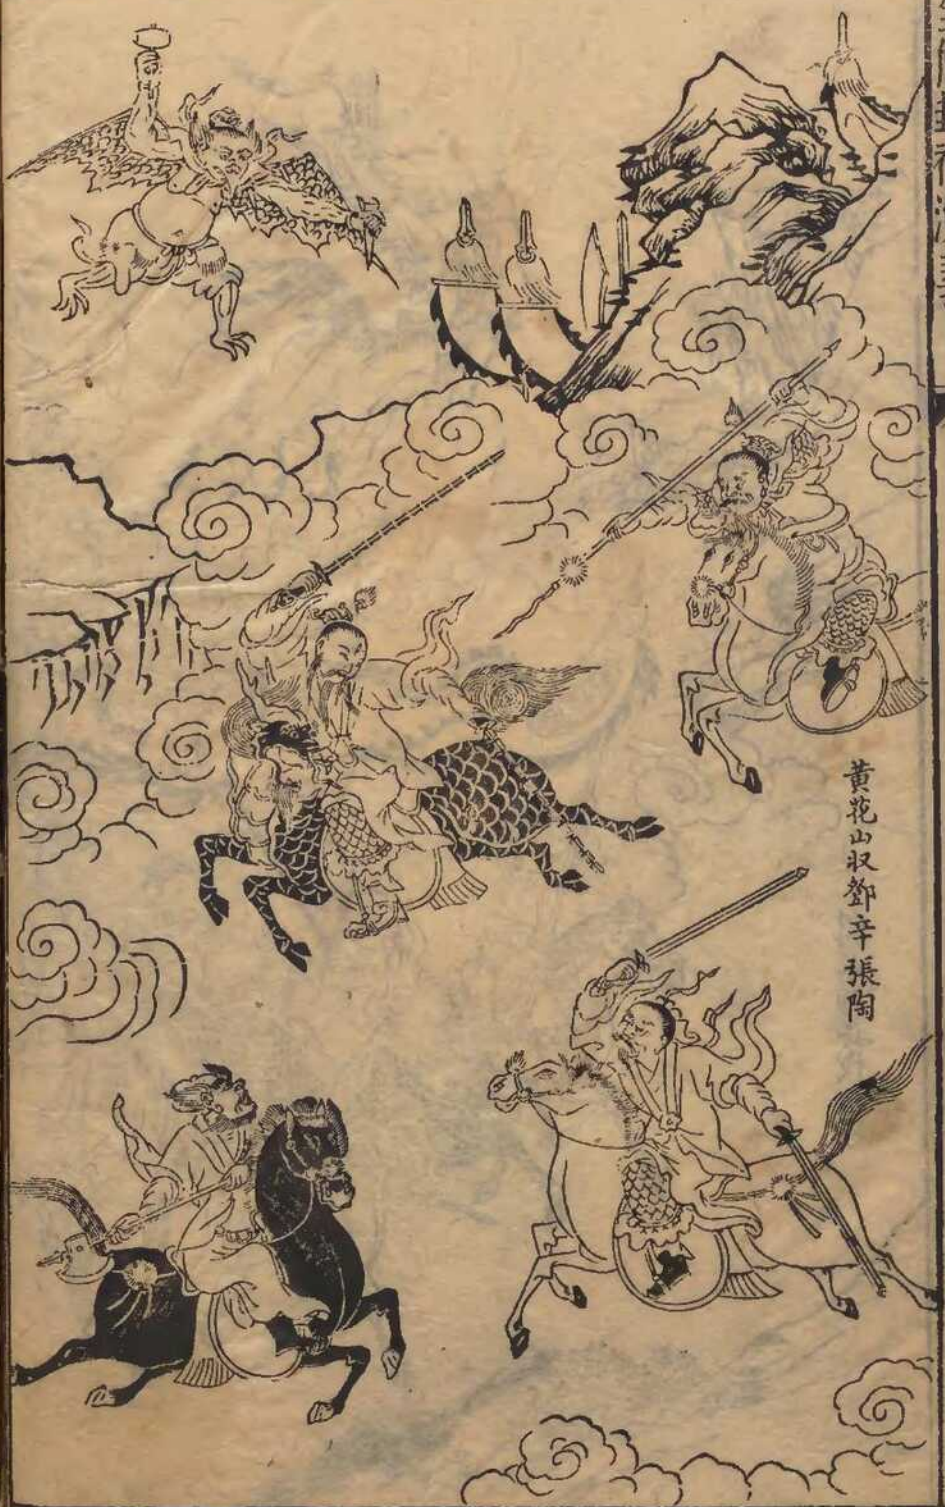 黄花山収鄧辛張陶